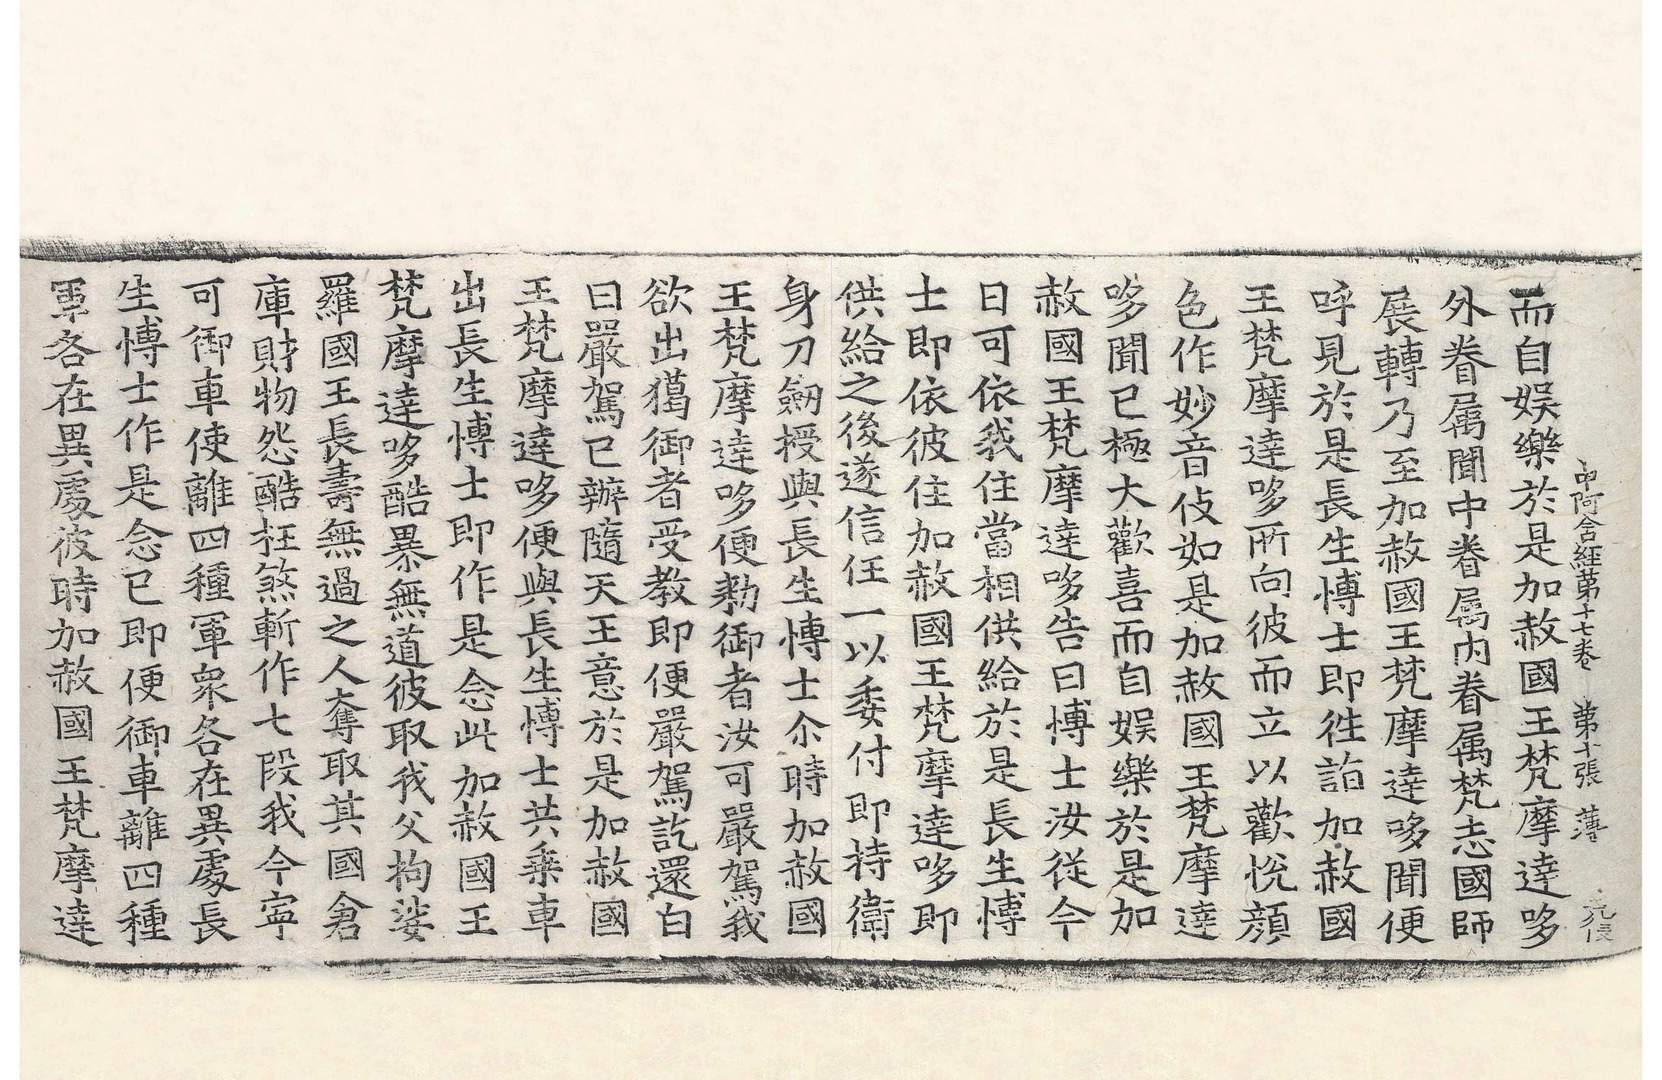 中阿含經第十七卷 第十張 薄
而自娛樂於是加赦國王梵摩達哆
外眷属聞中眷属内眷属梵志國師
展轉乃至加赦國王梵摩達哆聞便
呼見於是長生博士即徃詣加赦國
王梵摩達哆所向彼而立以歡悅顔
色作妙音伎如是加赦國王梵摩達
哆聞已極大歡喜而自娛樂於是加
赦國王梵摩達哆告曰博士汝従今
日可依我住當相供給於是長生博
士即依彼住加赦國王梵摩達哆即
供給之後遂信任一以委付即持衛
身刀劒授與長生博士尒時加赦國
王梵摩達哆便勑御者汝可嚴駕我
欲出獦御者受教即便嚴駕訖還白
曰嚴駕已辦隨天王意於是加赦國
王梵摩達哆便與長生博士共乗車
出長生博士即作是念此加赦國王
梵摩達哆酷暴無道彼取我父拘娑
羅國王長壽無過之人奪取其國倉
庫財物怨酷枉煞斬作七段我今寧
可御車使離四種軍衆各在異處長
生博士作是念已即便御車離四種
軍各在異處彼時加赦國王梵摩達